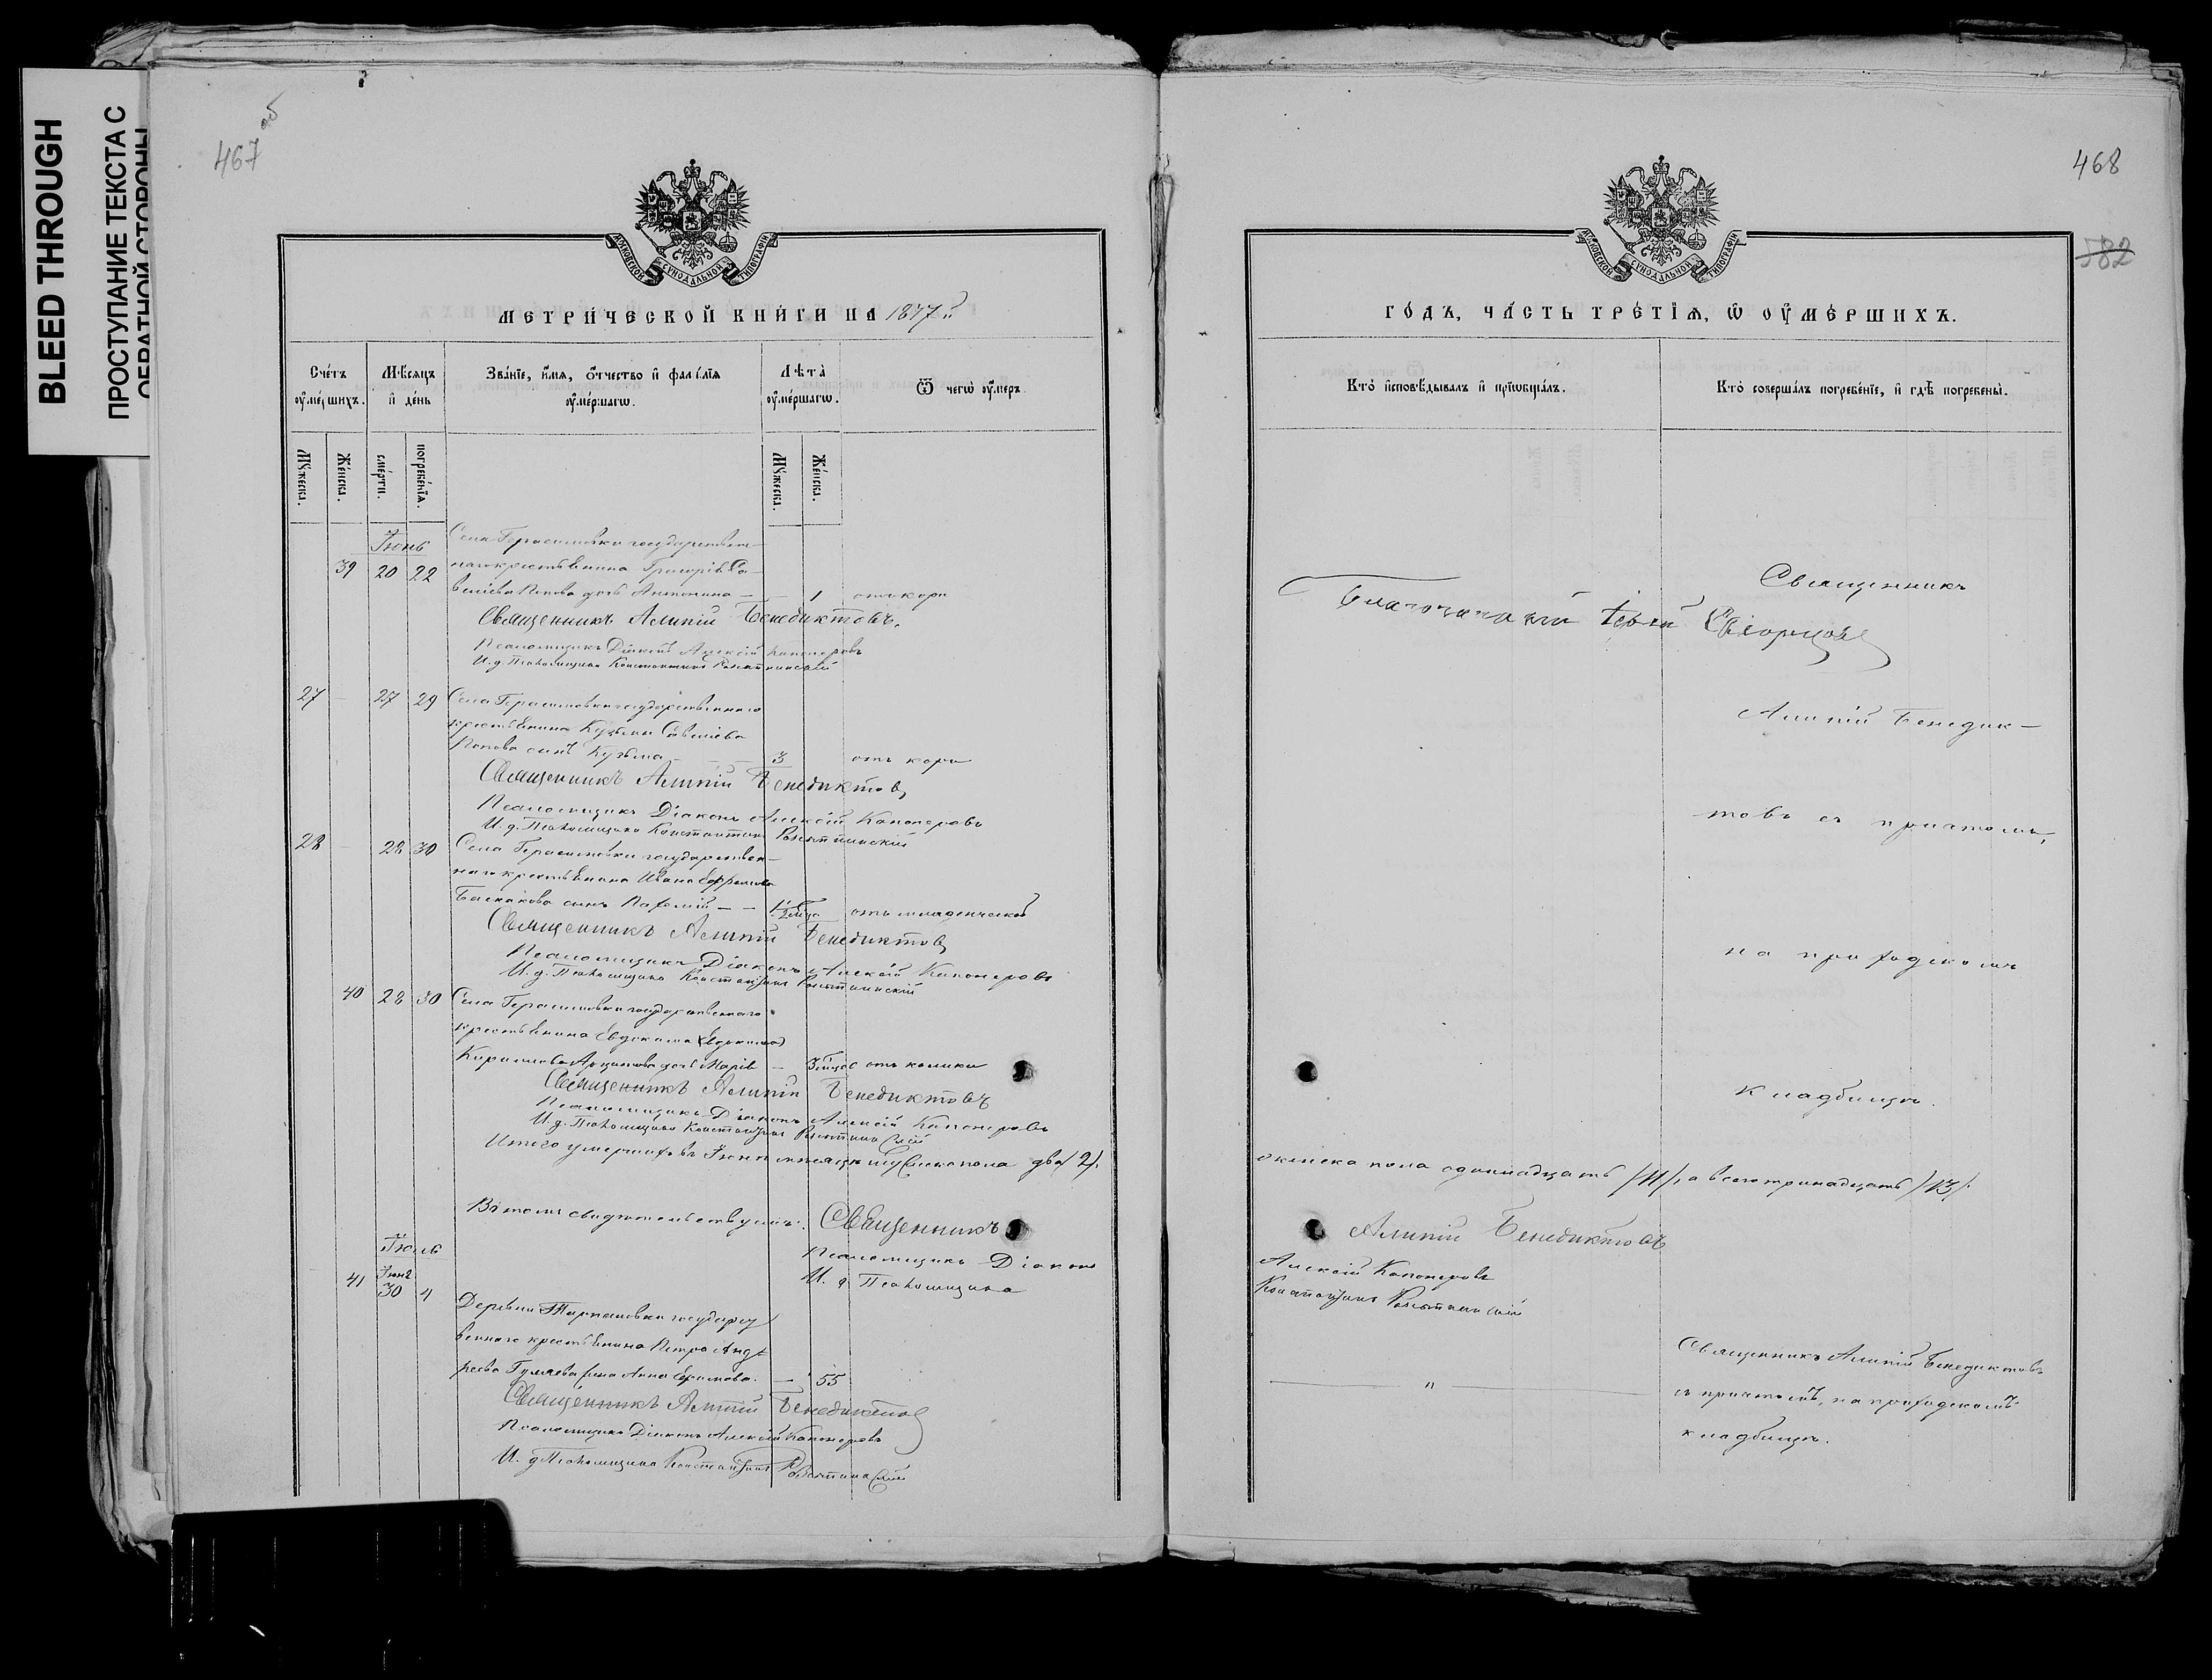 BLEED THROUGH
ПРОСТУПАНИЕ ТЕКСТА С
ОБРАТНОЙ СТОРОНЫ
467 об
МОСКОВСКОЙ СѴНОДАЛЬНОЙ ТИПОГРАФІИ
МЕТРИ́ЧЕСКОЙ КНИ́ГИ НА 1877й
Сче́тъ ᲂу҆ме́ршихъ.
Мѣ́сяцъ и҆ де́нь
Зва́нїе, и҆́мѧ, ѻ҆́тчество и҆ фамı́лїѧ ᲂу҆ме́ршагѡ.
Лѣ́та ᲂу҆ме́ршагѡ.
Ѿ чегѡ̀ ᲂу҆́меръ.
Мꙋ́жеска.
Же́нска.
сме́рти.
погребе́нїѧ.
Мꙋ́жеска.
Же́нска.
Іюнь
Села Герасимовки государствен-
39 20 22 наго крестьянина Григорія Са-
веліева Попова дочь Антонина — — 1 отъ кори
Священникъ Алипій Бенедиктовъ.
Псаломщикъ Діаконъ Алексій Канонеровъ
И. д. Псаломщика Константинъ
27 — 27 29 Села Герасимовки государственнаго
крестьянина Кузьмы Савеліева
Попова сынъ Кузьма — — 3 отъ кори
Священникъ Алипій Бенедиктовъ
Псаломщикъ Діаконъ Алексій Канонеровъ
И. д. Псаломщика Константинъ
28 — 28 30 Села Герасимовки государствен-
наго крестьянина Ивана Ефремова
Баскакова сынъ — — отъ младенческой
Священникъ Алипій Бенедиктовъ
Псаломщикъ Діаконъ Алексій Канонеровъ
И. д. Псаломщика Константинъ
40 28 30 Села Герасимовки государственнаго
крестьянина Евдокима (Евдокимова)
дочь Марія — отъ колики
Священникъ Алипій Бенедиктовъ
Псаломщикъ Діаконъ Алексій Канонеровъ
И. д. Псаломщика Константинъ
Итого умершихъ въ Іюнѣ мѣсяцѣ мужеска пола два /2/.
Въ томъ свидѣтельствуемъ: Священникъ
Псаломщикъ Діаконъ
И. д. Псаломщика
Іюль
41 Іюня 30 4
Деревни государст-
веннаго крестьянина Петра Анд-
реева Гуляева жена Анна Ефимова. — 55
Священникъ Алипій Бенедиктовъ
Псаломщикъ Діаконъ Алексій Канонеровъ
И. д. Псаломщика Константинъ
468
582
МОСКОВСКОЙ СѴНОДАЛЬНОЙ ТИПОГРАФІИ
ГО́ДЪ, ЧА́СТЬ ТРЕ́ТЇѦ, Ѽ ОУ҆МЕ́РШИХЪ.
Кто̀ и҆сповѣ́дывалъ и҆ прїѡбща́лъ.
Кто̀ соверша́лъ погребе́нїе, и҆ гдѣ̀ погребены̀.
Священникъ
Благочинный Іерей Скворцовъ
Алипій Бенедик-
товъ съ причтомъ,
на приходскомъ
кладбищѣ.
женска пола одиннадцать /11/, а всего тринадцать /13/.
Алипій Бенедиктовъ
Алексій Канонеровъ
Константинъ
— " —
Священникъ Алипій Бенедиктовъ
съ причтомъ, на приходскомъ
кладбищѣ.